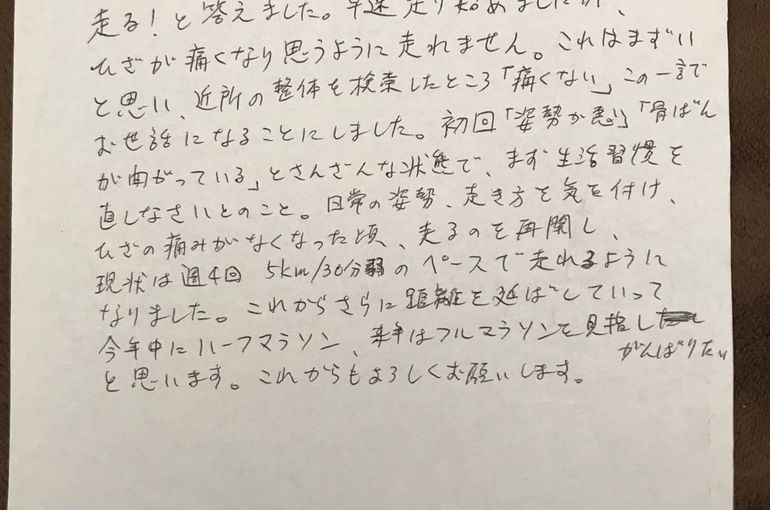 走る！と答えました。早速走り始めましたが、
ひざが痛くなり思うように走れません。これはまずい
と思い、近所の整体を検索したところ「痛くない」この一言で
お世話になることにしました。初回「姿勢が悪い」「骨ばん
が曲がっている」とさんざんな状態で、まず生活習慣を
直しなさいとのこと。日常の姿勢、走き方を気を付け、
ひざの痛みがなくなった頃、走るのを再開し、
現状は週4回 5km/30分弱のペースで走れるように
なりました。これからさらに距離を延ばしていって
今年中にハーフマラソン、来年はフルマラソンを見指し
がんばりたい
と思います。これからもよろしくお願いします。